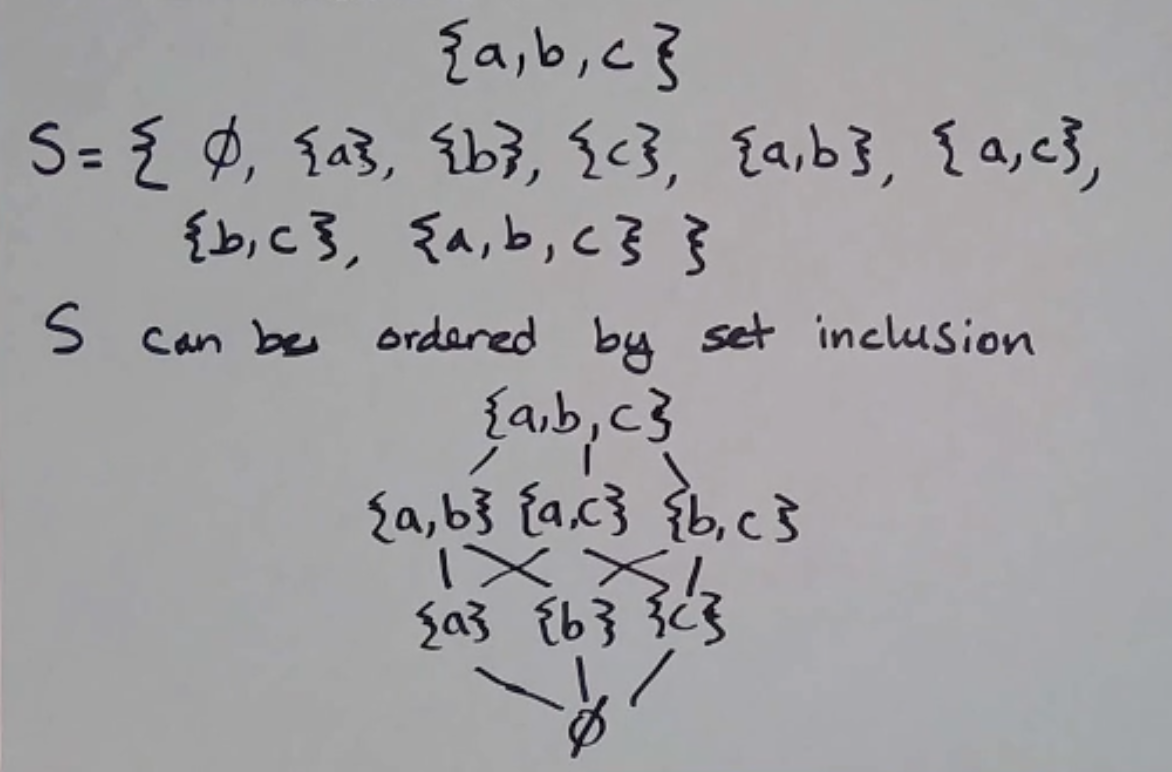 {a,b,c}
S={ ∅, {a}, {b}, {c}, {a,b}, {a,c},
{b,c}, {a,b,c} }
S can be ordered by set inclusion
{a,b,c}
{a,b} {a,c} {b,c}
{a} {b} {c}
∅